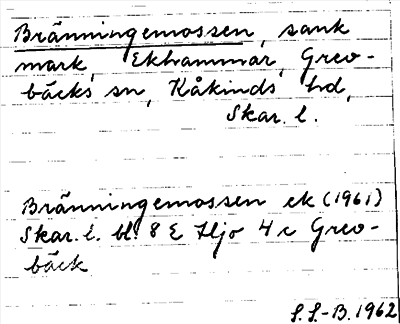 Bränningemossen, sank
mark, Ekhammar, Grev-
bäcks sn, Kåkinds hd,
Skar. l.
Bränningemossen ek (1961)
Skar. l. bl. 8 E Hjo 4 c Grev-
bäck
S.S.-B. 1962